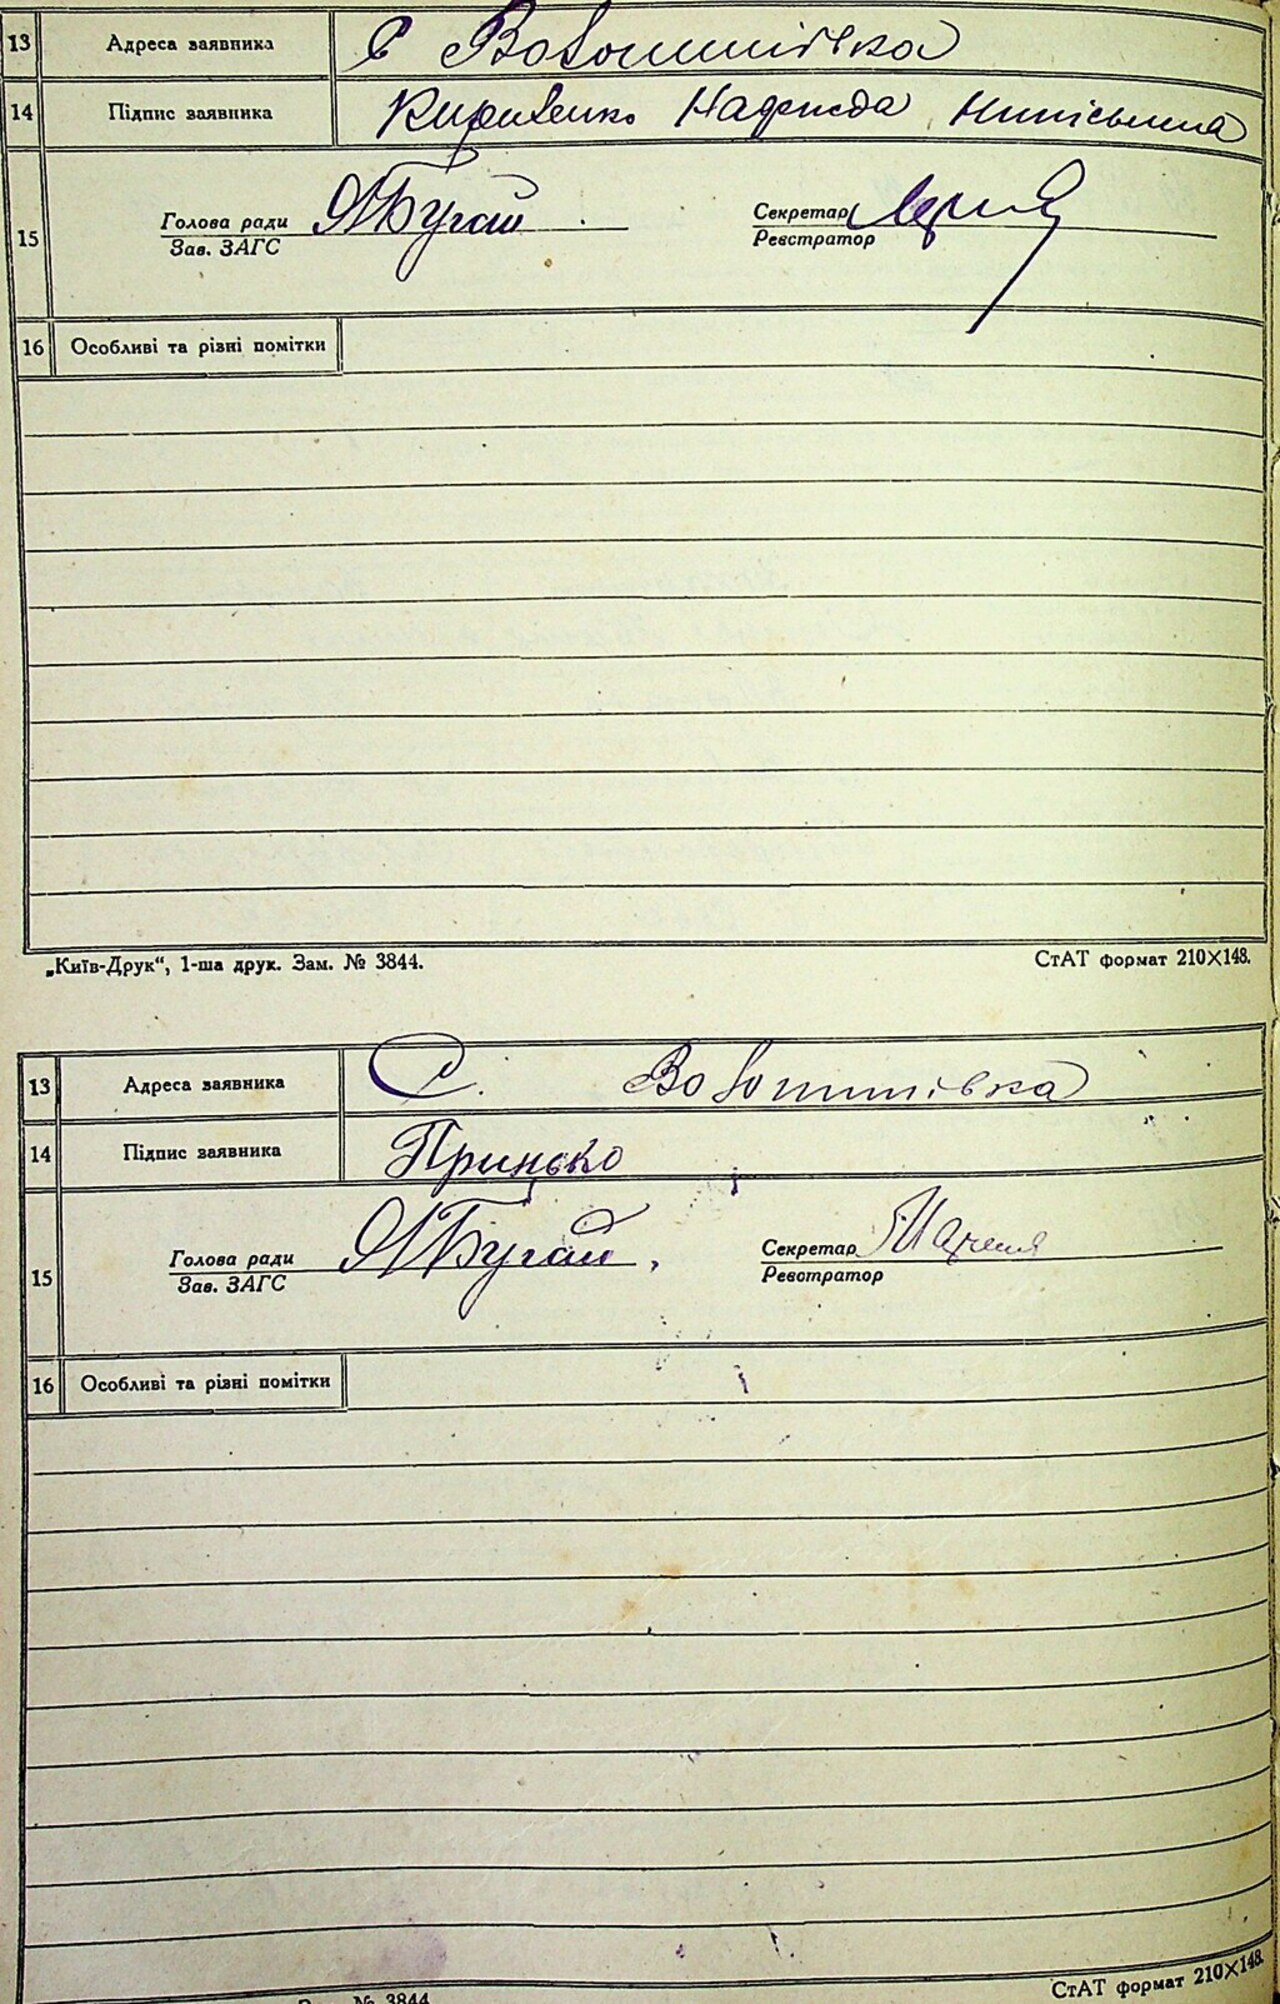 13 Адреса заявника с Волошинівка
14 Підпис заявника Кириленко Надежда
15 Голова ради Бугай Секретар
Зав. ЗАГС Реєстратор
16 Особливі та різні помітки
„Київ-Друк“, 1-ша друк. Зам. № 3844. СтАТ формат 210×148.
13 Адреса заявника С. Волошинівка
14 Підпис заявника Принько
15 Голова ради Бугай Секретар
Зав. ЗАГС Реєстратор
16 Особливі та різні помітки
№ 3844 СтАТ формат 210×148.